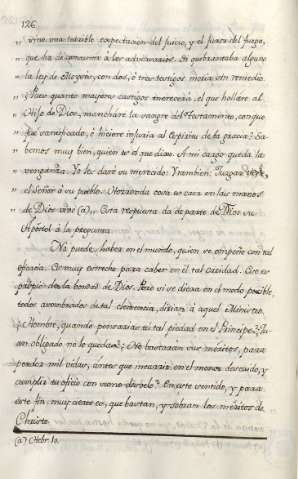 126.
„ sino una terrible expectacion del juicio, y el furor del fuego,
„ que ha de consumir à los adversarios. Si quebrantaba alguno
„ la ley de Moyses, con dos, ò tres testigos moria sin remedio.
„ Pues quanto mayores castigos merecerà, el que hollàre al
„ Hijo de Dios, manchàre la sangre del Testamento, con que
„ fuè santificado, è hiciere injuria al Espiritu de la gracia? Sa-
„ bemos muy bien, quien es el que dixo: A mi cargo queda la
„ venganza. Yo les darè su merecido. Y tambien: Juzgarà
„ el Señor à su pueblo. Horrorosa cosa es caer en las manos
„ de Dios vivo (a). Esta respuesta dà de parte de Dios su
Apòstol à la pregunta.
No puede haber en el mundo, quien se empeñe con tal
oficio. Es muy estrecho para caber en el tal caridad.
de la bondad de Dios. Pero si se diera en el modo posible,
todos asombrados de tal clemencia, dirian à aquel Ministro:
Hombre, quando pensaràs tu tal piedad en el Principe?
obligado no le quedas? No bastaràn sus meritos, para
mil vidas, antes que incurrir en el menor descuido, y
cumplir tu oficio con sumo desvelo? En este sentido, y para
este fin, muy cierto es, que bastan, y sobran los mèritos de
Christo.
(a) Hebr. 10.